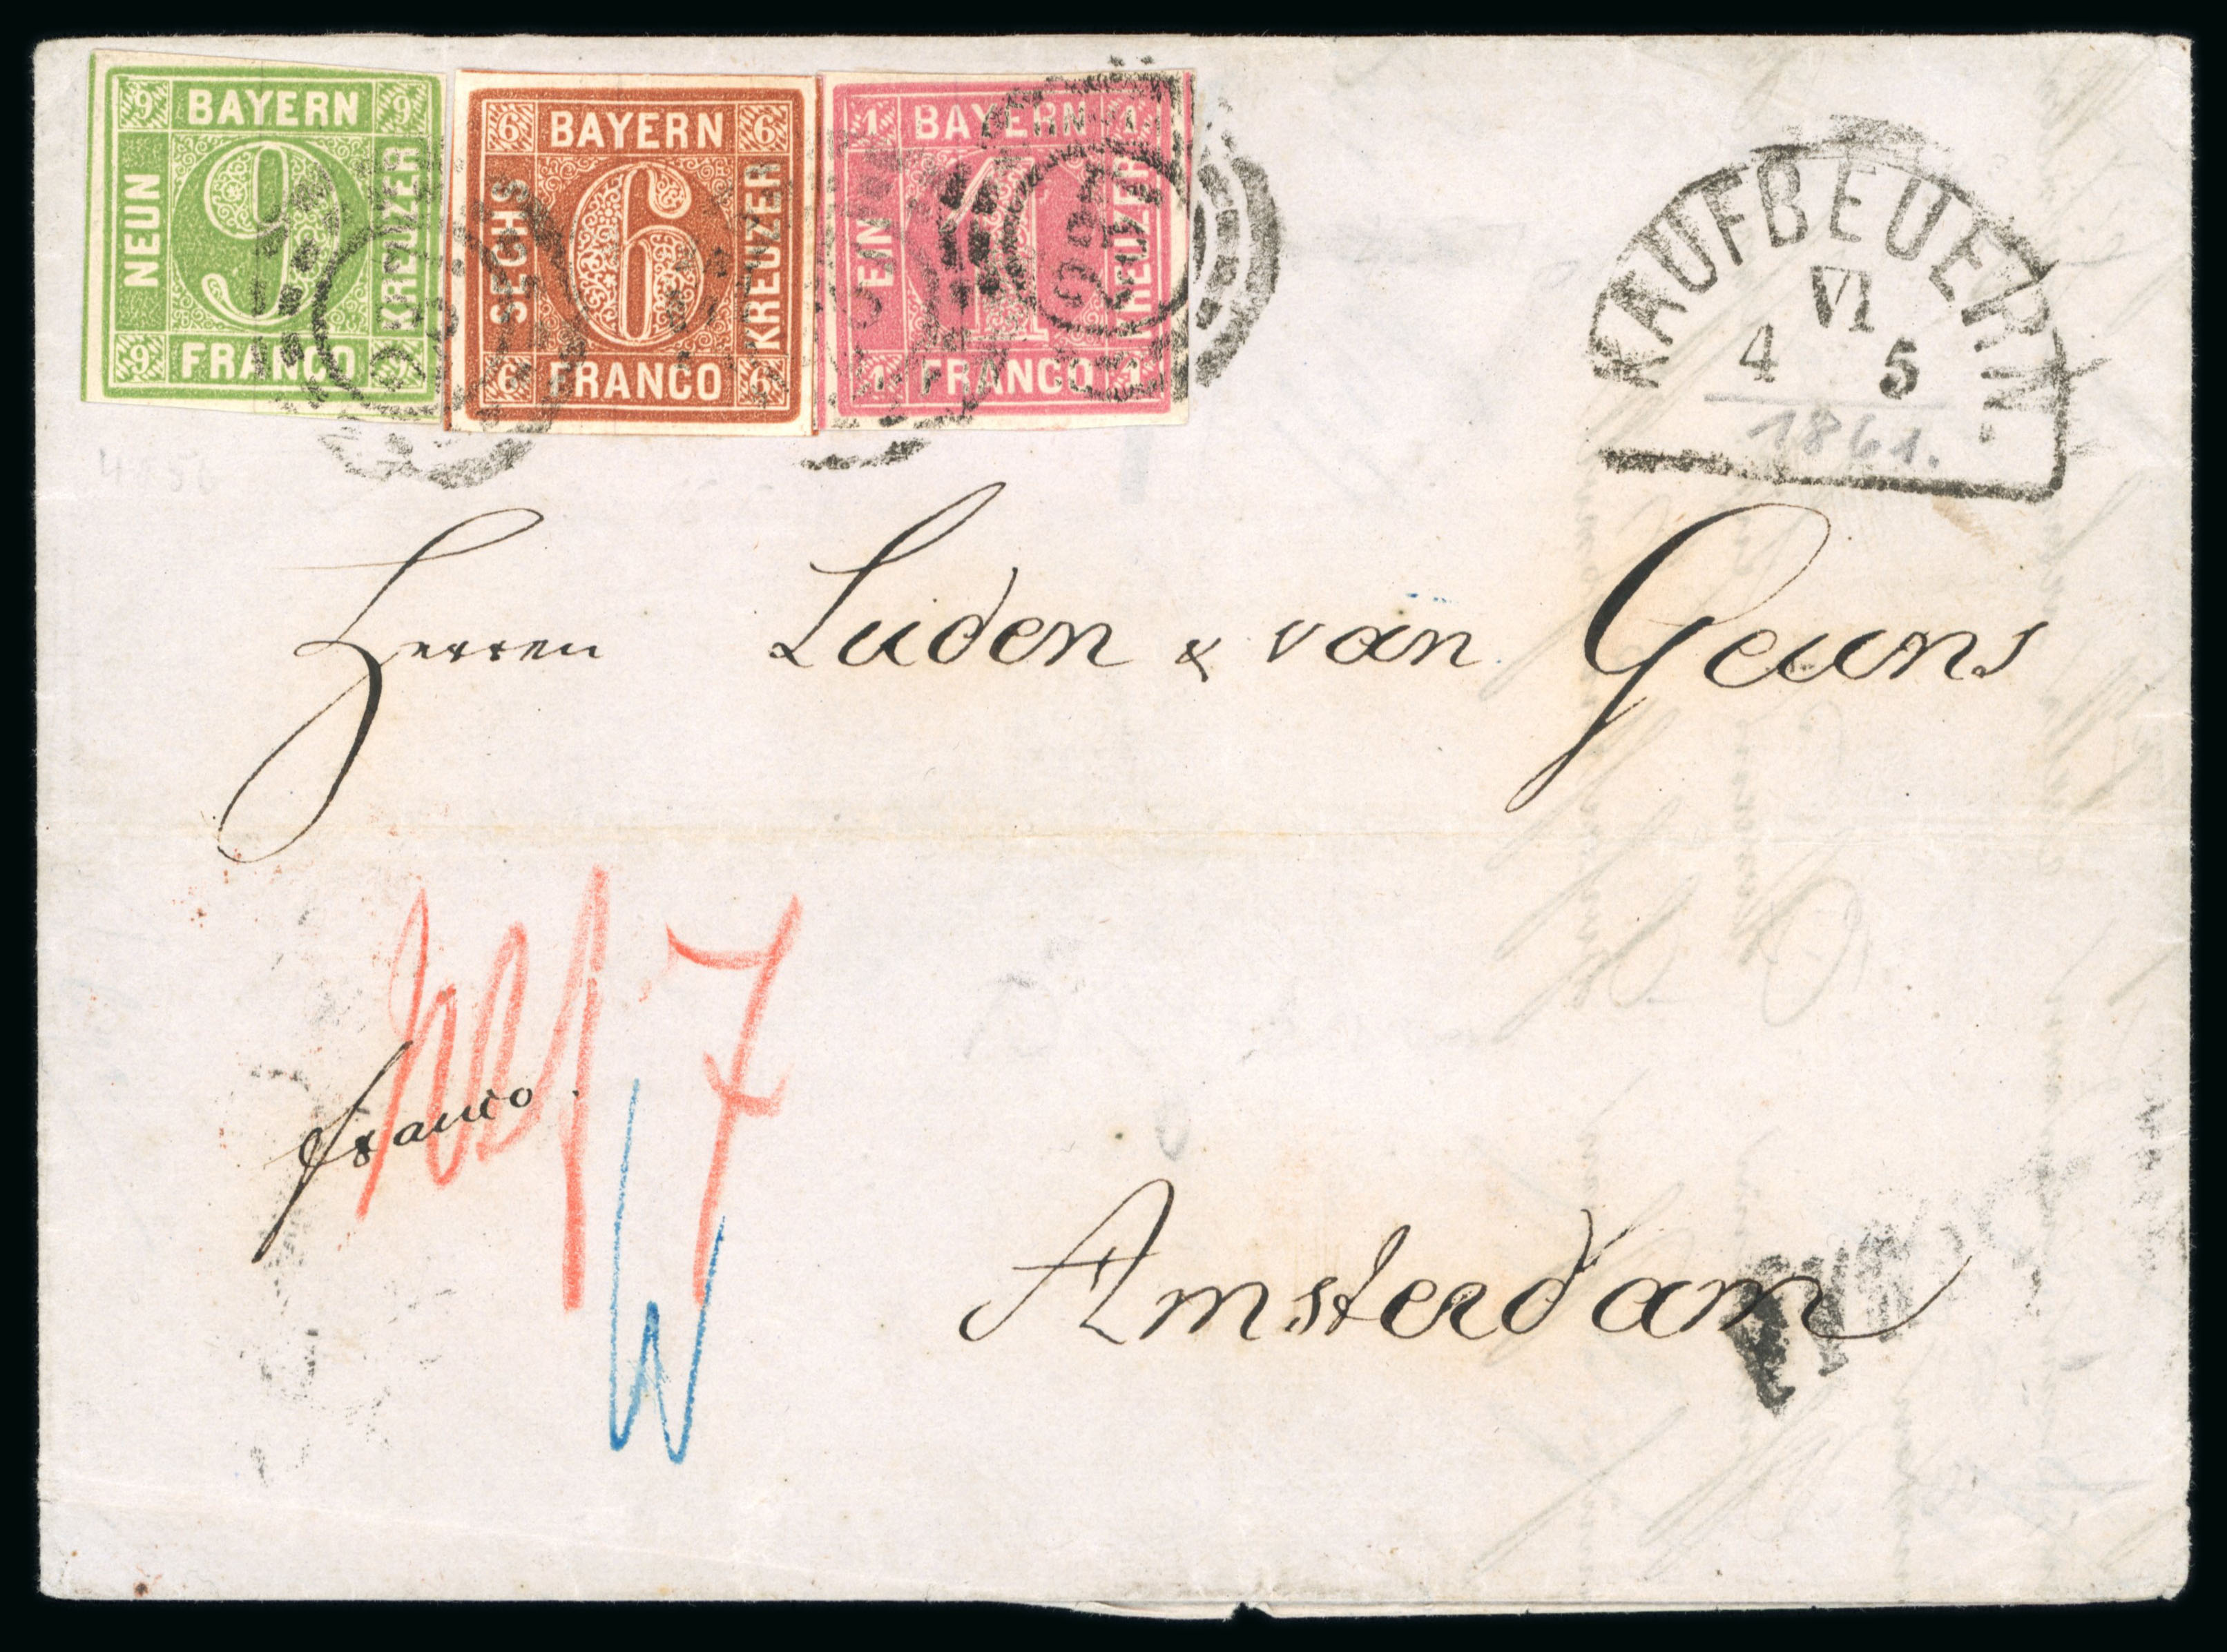 9 BAYERN 9
NEUN 9 KREUZER
9 FRANCO 9
6 BAYERN 6
SECHS 6 KREUZER
6 FRANCO 6
1 BAYERN 1
EIN 1 KREUZER
1 FRANCO 1
KAUFBEUERN.
VI
4 5
1861.
Herren Luden & van Geuns
7
franco.
Amsterdam